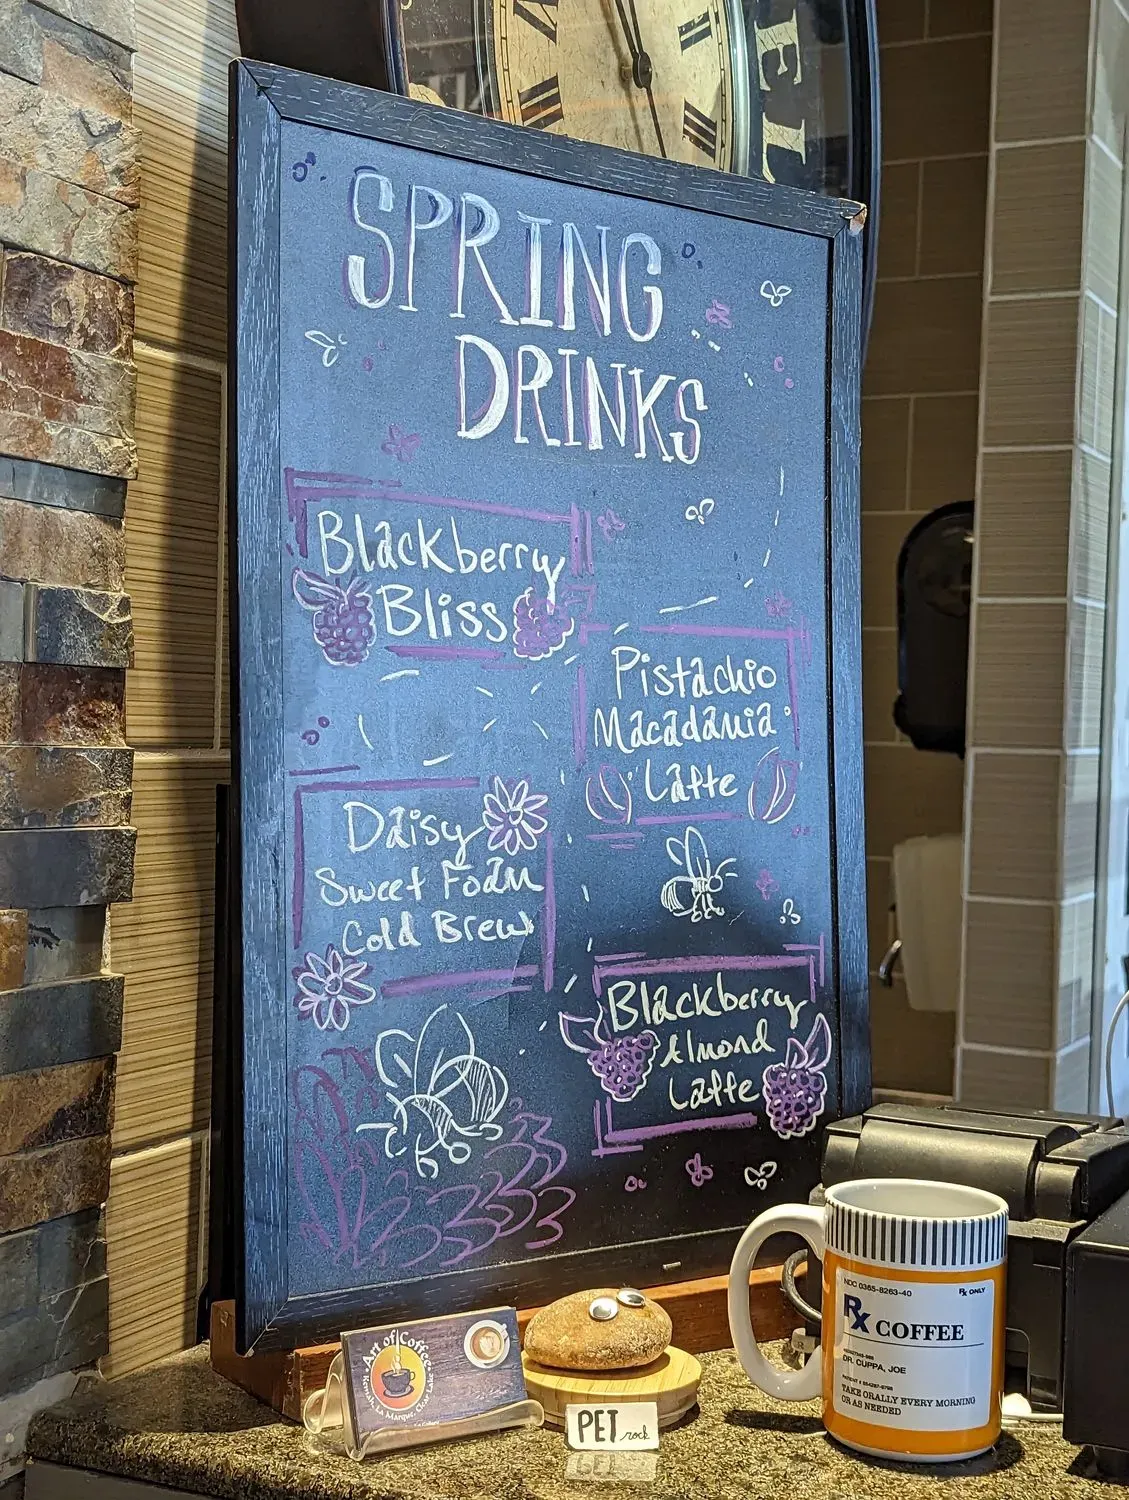 SPRING
DRINKS
Blackberry
Bliss
Pistachio
Macadamia
Latte
Daisy
Sweet Foam
Cold Brew
Blackberry
Almond
Latte
Art of Coffee
Kemah, La Marque, Clear Lake
PET rock
NDC 0365-8263-40
Rx ONLY
Rx COFFEE
DR. CUPPA, JOE
TAKE ORALLY EVERY MORNING
OR AS NEEDED